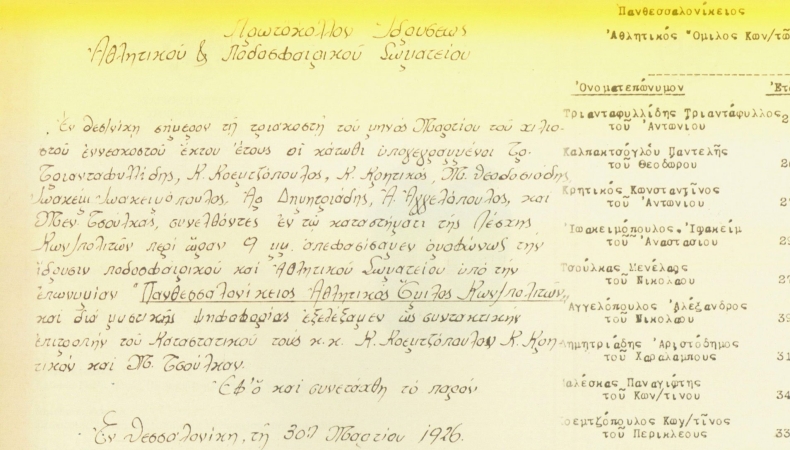 Πρωτόκολλον Ιδρύσεως
Αθλητικού & Ποδοσφαιρικού Σωματείου
Εν Θεσ/νίκη σήμερον τη τριακοστή του μηνός Μαρτίου του χιλιο-
στού εννεακοστού έκτου έτους οι κάτωθι υπογεγραμμένοι Τρ.
Τριανταφυλλίδης, Κ. Κοεμτζόπουλος, Κ. Κρητικός, Θεοδοσιάδης
Ιωακείμ Ιωακειμόπουλος, Αρ. Δημητριάδης, Α. Αγγελόπουλος, και
Μεν. Τσούλκας, συνελθόντες εν τω καταστήματι της Λέσχης
Κων/πολιτών περί ώραν 9 μμ. απεφασίσαμεν ομοφώνως την
ίδρυσιν ποδοσφαιρικού και Αθλητικού Σωματείου υπό την
επωνυμίαν "Πανθεσσαλονίκειος Αθλητικός Όμιλος Κων/πολιτών"
και διά μυστικής ψηφοφορίας εξελέξαμεν ως συντακτικήν
επιτροπήν του Καταστατικού τους κ.κ. Κ. Κοεμτζόπουλον Κ. Κρη-
τικόν και Μ. Τσούλκαν.
Εφ' ώ και συνετάχθη το παρόν
Εν Θεσσαλονίκη, τη 30η Μαρτίου 1926.
Πανθεσσαλονίκειος
Ἀθλητικός Ὅμιλος Κων/τῶ
Ὀνοματεπώνυμον Ἔτ
Τριανταφυλλίδης Τριαντάφυλλος
τοῦ Ἀντωνίου
Καλπακτσόγλου Παντελῆς
τοῦ Θεοδώρου
Κρητικός Κωνσταντῖνος
τοῦ Ἀντωνίου
Ἰωακειμόπουλος Ἰωακείμ
τοῦ Ἀναστασίου
Τσούλκας Μενέλαος
τοῦ Νικολάου
Ἀγγελόπουλος Ἀλέξανδρος
τοῦ Νικολάου
Δημητριάδης Ἀριστόδημος 31
τοῦ Χαραλάμπους
αλέσκας Παναγιώτης
τοῦ Κων/τίνου 34
οεμτζόπουλος Κων/τῖνος
τοῦ Περικλέους 33